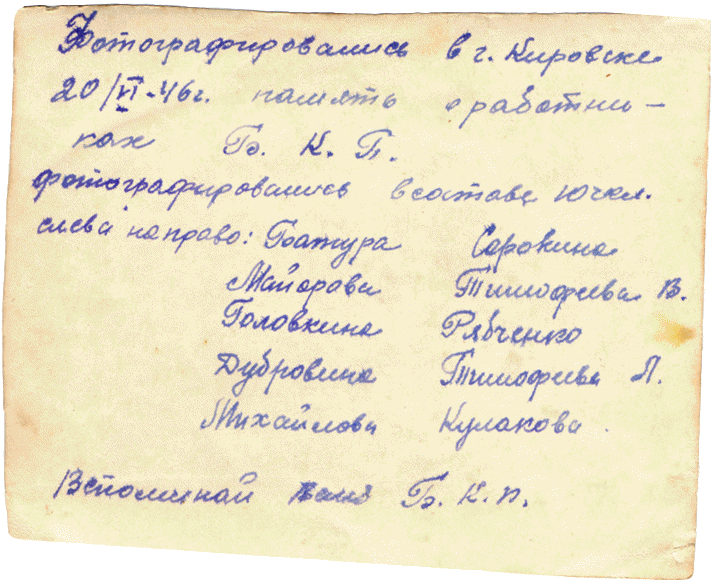 Фотографировались в г. Кировске
20/VI-46г. память о работни-
ках Б. К. П.
фотографировались в составе 10 чел.
слева направо: Батура Сорокина
Майорова Тимофеева В.
Головкина Рябченко
Дубровина Тимофеева Л.
Михайлова Кулакова.
Вспоминай Б. К. П.